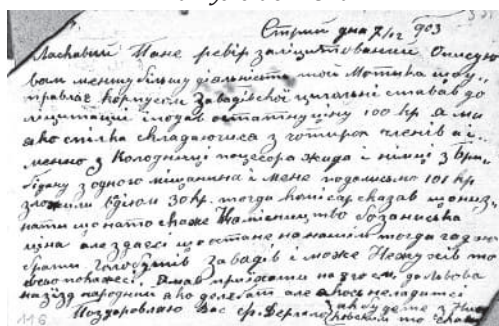 Стрий дна 7/12 903
Ласкавий Пане ревір заліцитований Описую
вам меншу більшу діяльність той Мотика що у
правляє Корпусом Завадівскої цигольні ставав до
ліцитациі і подав остатную ціну 100 кр. а ми
яко спілка складаючися з чотирох членів а і
менно з Колодниці поцесора жида і німці з Бри
гідау з одного міщанина і мене подалисьмо 101 кр
зложили вадіюм 30 кр. тогда комісар сказав
нати що на то скаже Намісництво бо за низька
ціна але здаєсь що остане на нашім тогда годно
брати Голобутів Завадів і може Нежухів то
ся покажесі. Я мав приїхати на до Львова
на зїзд народний яко делєґат але якось неладитсі
Поздоровляю Вас гр. Деркало
як будете з
ковским то
116